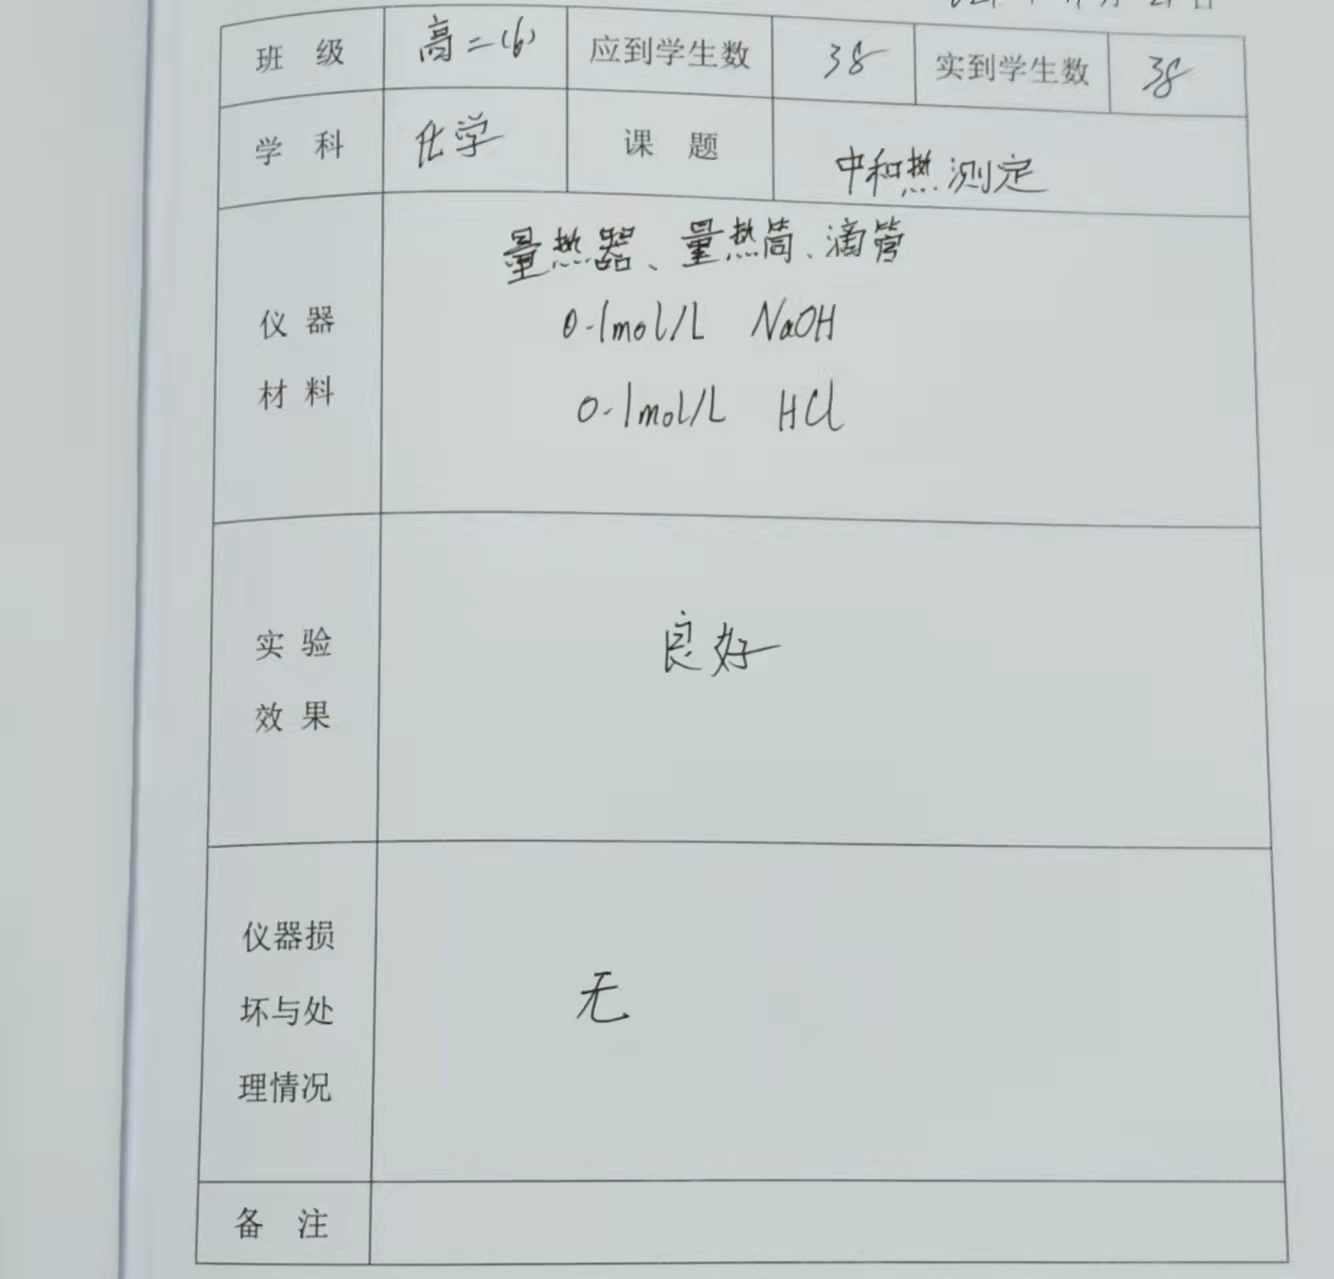 班 级 高二(6) 应到学生数 38 实到学生数 38
学 科 化学 课 题 中和热测定
量热器、量热筒、滴管
0.1mol/L NaOH
仪 器
材 料
0.1mol/L HCl
实 验
良好
效 果
仪器损
无
坏与处
理情况
备 注